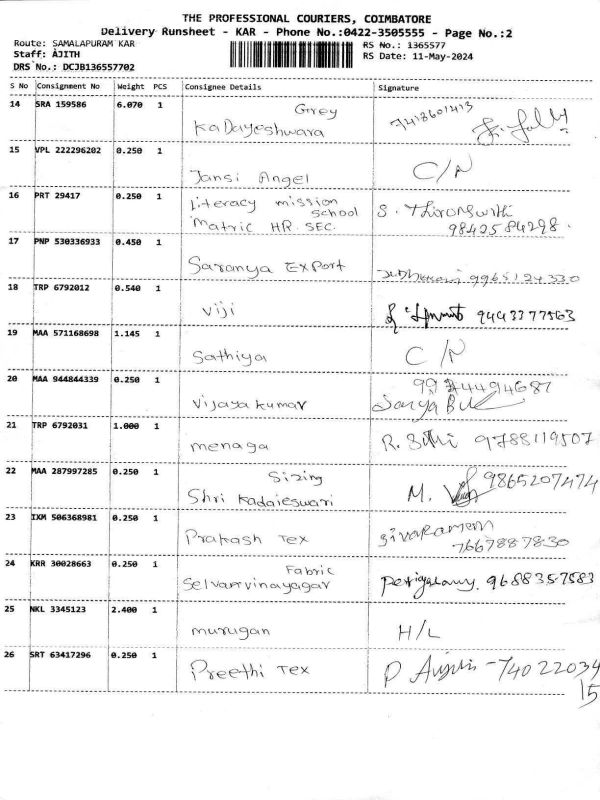 THE PROFESSIONAL COURIERS, COIMBATORE
Delivery Runsheet - KAR - Phone No.:0422-3505555 - Page No.:2
Route: SAMALAPURAM KAR
Staff: AJITH
DRS No.: DCJB136557702
RS No.: 1365577
RS Date: 11-May-2024
S No Consignment No Weight PCS Consignee Details Signature
14 SRA 159586 6.070 1 Grey
Kadayeshwara 7418601413
15 VPL 222296202 0.250 1
Jansi Angel C/N
16 PRT 29417 0.250 1 Literacy mission
school
Matric HR. SEC. S.
9842584298.
17 PNP 530336933 0.450 1
Saranya Export 9965124330
18 TRP 6792012 0.540 1
Viji 9443377563
19 MAA 571168698 1.145 1
Sathiya C/N
20 MAA 944844339 0.250 1
Vijaya kumar
21 TRP 6792031 1.000 1
menaga R. 9788119507
22 MAA 287997285 0.250 1 Sizing
Shri Kadaieswari M. 9865207474
23 IXM 506368981 0.250 1
Prakash Tex
7667887830
24 KRR 30028663 0.250 1 Fabric
Selvamvinayagar 9688357583
25 NKL 3345123 2.400 1
murugan H/L
26 SRT 63417296 0.250 1
Preethi Tex P -74022034
15